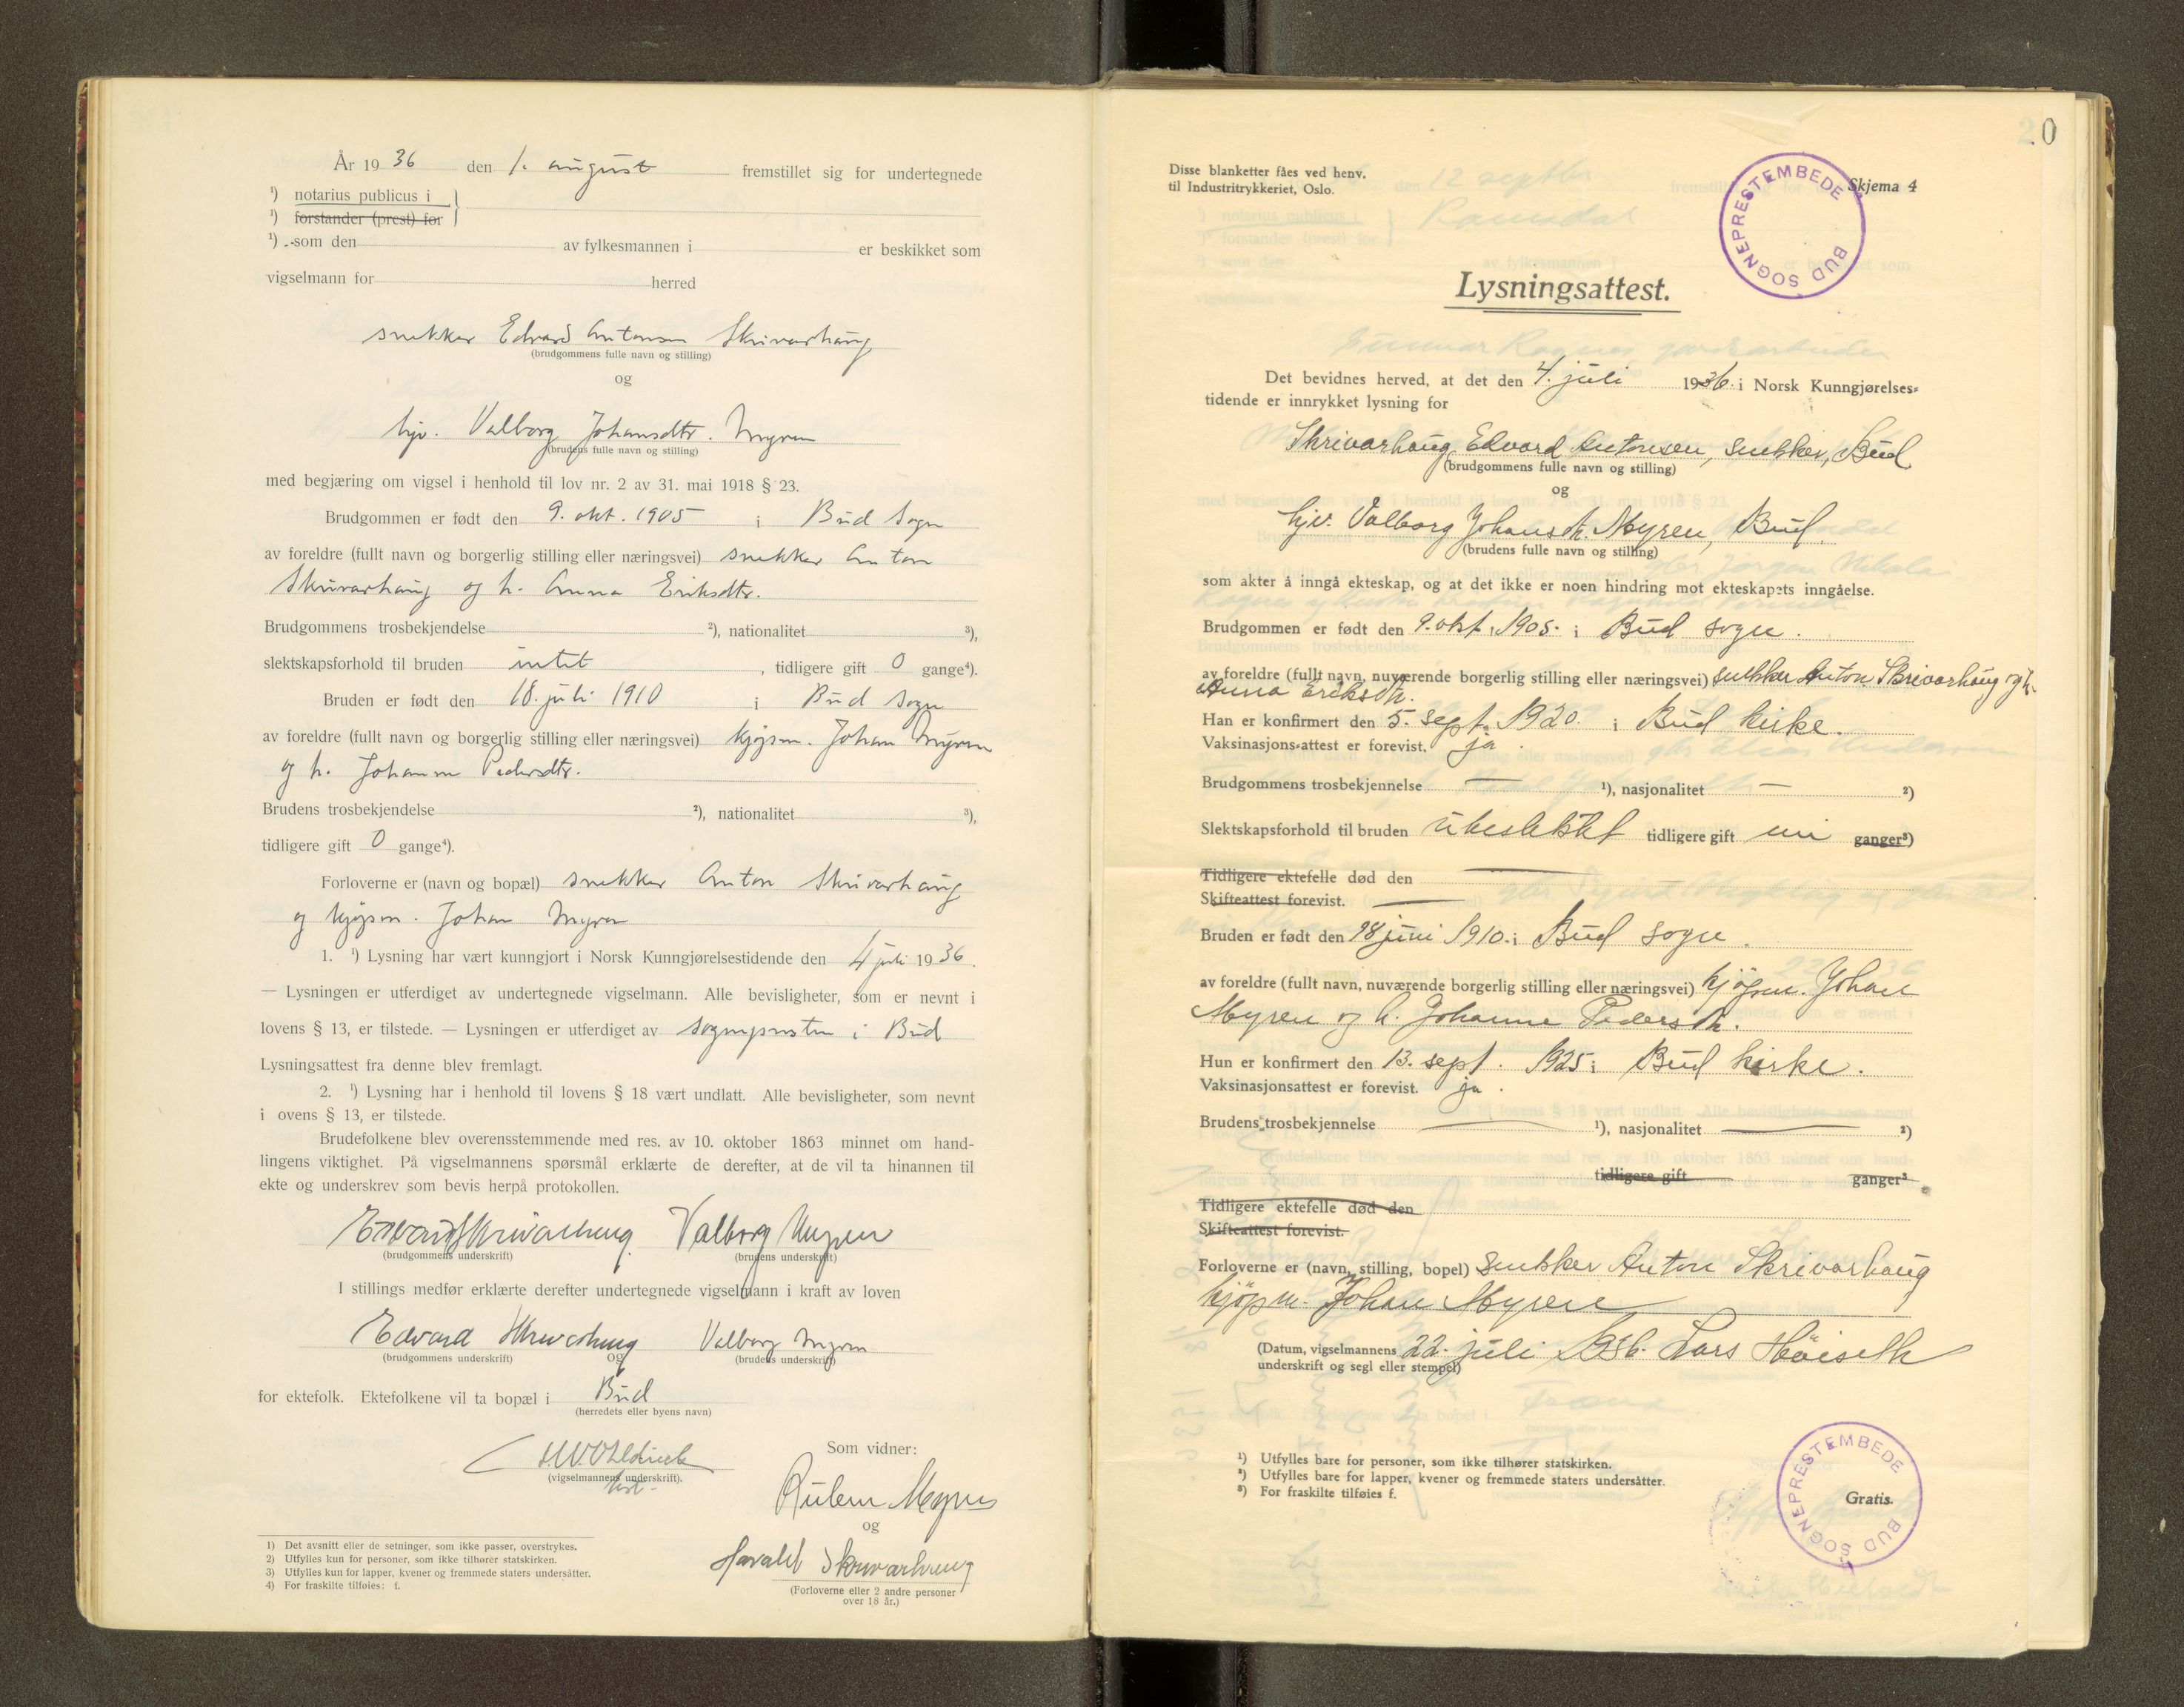 År 1936 den 1. august fremstillet sig for undertegnede
¹) notarius publicus i
¹) forstander (prest) for
¹) som den av fylkesmannen i er beskikket som
vigselmann for herred
snekker Edvard Antonsen Skrivarhaug
(brudgommens fulle navn og stilling)
og
hjv. Valborg Johansdtr. Myren
(brudens fulle navn og stilling)
med begjæring om vigsel i henhold til lov nr. 2 av 31. mai 1918 § 23.
Brudgommen er født den 9. okt. 1905 i Bud sogn
av foreldre (fullt navn og borgerlig stilling eller næringsvei) snekker Anton
Skrivarhaug og h. Anna Eriksdtr.
Brudgommens trosbekjendelse ²), nationalitet ³),
slektskapsforhold til bruden intet, tidligere gift 0 gange⁴).
Bruden er født den 18. juli 1910 i Bud sogn
av foreldre (fullt navn og borgerlig stilling eller næringsvei) kjøpm. Johan Myren
og h. Johanne Pedersdtr.
Brudens trosbekjendelse ²), nationalitet ³),
tidligere gift 0 gange⁴).
Forloverne er (navn og bopæl) snekker Anton Skrivarhaug
og kjøpm. Johan Myren
1. ¹) Lysning har vært kunngjort i Norsk Kunngjørelsestidende den 4 juli 1936.
— Lysningen er utferdiget av undertegnede vigselmann. Alle bevisligheter, som er nevnt i
lovens § 13, er tilstede. — Lysningen er utferdiget av sognepresten i Bud
Lysningsattest fra denne blev fremlagt.
2. ¹) Lysning har i henhold til lovens § 18 vært undlatt. Alle bevisligheter, som nevnt
i ovens § 13, er tilstede.
Brudefolkene blev overensstemmende med res. av 10. oktober 1863 minnet om hand-
lingens viktighet. På vigselmannens spørsmål erklærte de derefter, at de vil ta hinannen til
ekte og underskrev som bevis herpå protokollen.
Edvard Skrivarhaug Valborg Myren
(brudgommens underskrift) (brudens underskrift)
I stillings medfør erklærte derefter undertegnede vigselmann i kraft av loven
Edvard Skrivarhaug og Valborg Myren
(brudgommens underskrift) (brudens underskrift)
for ektefolk. Ektefolkene vil ta bopæl i Bud
(herredets eller byens navn)
(vigselmannens underskrift).
Som vidner:
Myren
og
Harald Skrivarhaug
(Forloverne eller 2 andre personer
over 18 år.)
1) Det avsnitt eller de setninger, som ikke passer, overstrykes.
2) Utfylles kun for personer, som ikke tilhører statskirken.
3) Utfylles kun for lapper, kvener og fremmede staters undersåtter.
4) For fraskilte tilføies: f.
20
Disse blanketter fåes ved henv.
til Industritrykkeriet, Oslo.
Skjema 4
BUD SOGNEPRESTEMBEDE
Lysningsattest.
Det bevidnes herved, at det den 4. juli 1936 i Norsk Kunngjørelses-
tidende er innrykket lysning for
Skrivarhaug Edvard Antonsen, snekker, Bud
(brudgommens fulle navn og stilling)
og
hjv. Valborg Johansdtr. Myren, Bud.
(brudens fulle navn og stilling)
som akter å inngå ekteskap, og at det ikke er noen hindring mot ekteskapets inngåelse.
Brudgommen er født den 9. okt. 1905. i Bud sogn.
av foreldre (fullt navn, nuværende borgerlig stilling eller næringsvei) snekker Anton Skrivarhaug og h.
Anna Eriksdtr.
Han er konfirmert den 5. sept. 1920. i Bud kirke.
Vaksinasjons-attest er forevist. ja.
Brudgommens trosbekjennelse — ¹), nasjonalitet — ²)
Slektskapsforhold til bruden ubeslektet tidligere gift nei ganger³)
Tidligere ektefelle død den —
Skifteattest forevist. —
Bruden er født den 18 juni 1910. i Bud sogn.
av foreldre (fullt navn, nuværende borgerlig stilling eller næringsvei) kjøpm. Johan
Myren og h. Johanne Pedersdtr.
Hun er konfirmert den 13. sept. 1925 i Bud kirke.
Vaksinasjonsattest er forevist. ja.
Brudens trosbekjennelse — ¹), nasjonalitet — ²)
tidligere gift ganger³
Tidligere ektefelle død den
Skifteattest forevist.
Forloverne er (navn, stilling, bopel) snekker Anton Skrivarhaug
kjøpm. Johan Myren
(Datum, vigselmannens 22. juli 1936. Lars Höiseth
underskrift og segl eller stempel)
¹) Utfylles bare for personer, som ikke tilhører statskirken.
²) Utfylles bare for lapper, kvener og fremmede staters undersåtter.
³) For fraskilte tilføies f.
Gratis.
BUD SOGNEPRESTEMBEDE